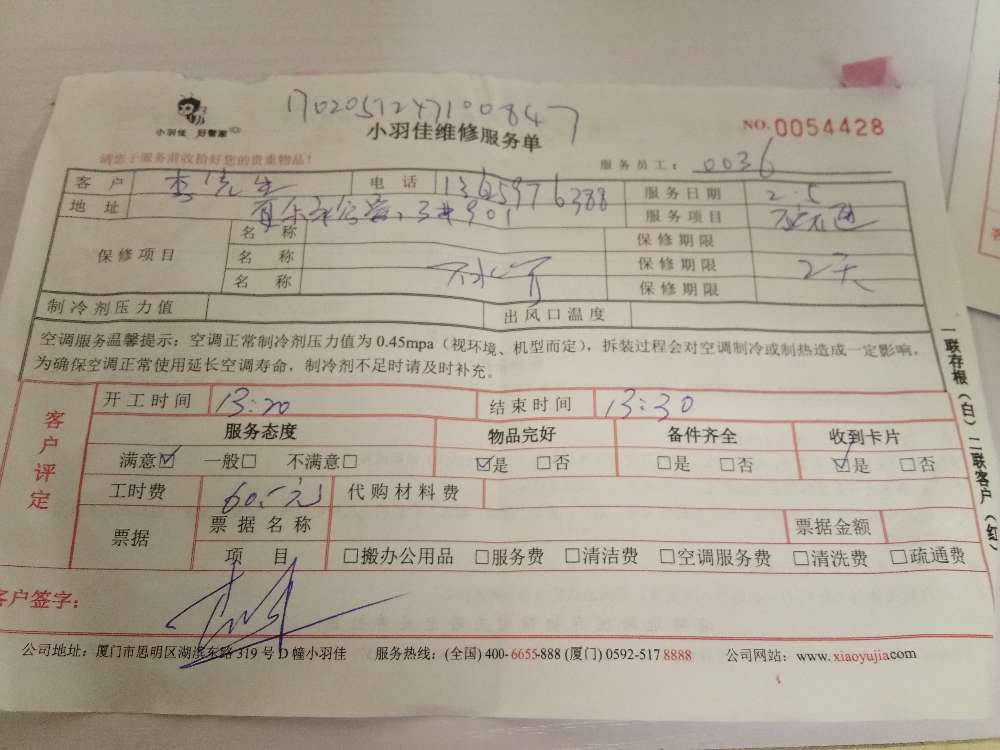 1702051247100847
小羽佳 好管家
小羽佳维修服务单
NO. 0054428
请您于服务前收拾好您的贵重物品!
服务员工: 0036
客户 李先生 电话 13659776388 服务日期 2.5
地址 3#901 服务项目
保修项目 名称 保修期限
名称 保修期限 2天
名称 保修期限
制冷剂压力值 出风口温度
空调服务温馨提示:空调正常制冷剂压力值为 0.45mpa(视环境、机型而定),拆装过程会对空调制冷或制热造成一定影响,
为确保空调正常使用延长空调寿命,制冷剂不足时请及时补充。
客户评定
开工时间 13:20 结束时间 13:30
服务态度 物品完好 备件齐全 收到卡片
满意☑ 一般□ 不满意□ ☑是 □否 □是 □否 ☑是 □否
工时费 60.5元 代购材料费
票据 票据名称 票据金额
项目 □搬办公用品 □服务费 □清洁费 □空调服务费 □清洗费 □疏通费
客户签字:
公司地址:厦门市思明区湖滨东路 319 号 D 幢小羽佳 服务热线:(全国) 400-6655-888 (厦门) 0592-517 8888 公司网站:www.xiaoyujia.com
一联存根(白)二联客户(红)